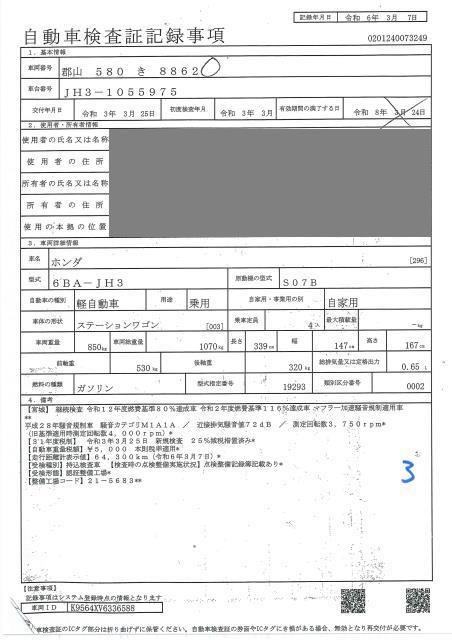 記録年月日 令和 6年 3月 7日
自動車検査証記録事項 0201240073249
1．基本情報
車両番号 郡山 580 き 8862
車台番号 JH3－1055975
交付年月日 令和 3年 3月 25日 初度検査年月 令和 3年 3月 有効期間の満了する日 令和 8年 3月 24日
2．使用者・所有者情報
使用者の氏名又は名称
使用者の住所
所有者の氏名又は名称
所有者の住所
使用の本拠の位置
3．車両詳細情報
車名 ホンダ [296]
型式 6BA－JH3 原動機の型式 S07B
自動車の種別 軽自動車 用途 乗用 自家用・事業用の別 自家用
車体の形状 ステーションワゴン [003] 乗車定員 4人 最大積載量 －kg
車両重量 850kg 車両総重量 1070kg 長さ 339cm 幅 147cm 高さ 167cm
前軸重 530kg 後軸重 320kg 総排気量又は定格出力 0.65 L
燃料の種類 ガソリン 型式指定番号 19293 類別区分番号 0002
4．備考
【宮城】 継続検査 令和12年度燃費基準80％達成車 令和2年度燃費基準116％達成車 マフラー加速騒音規制適用車
**
平成28年騒音規制車 騒音カテゴリM1A1A ／ 近接排気騒音値72dB ／ 測定回転数3，750rpm*
(旧基準適用時測定回転数4，000rpm)*
【31年度税制】 令和3年3月25日 新規検査 25％減税措置済み*
【自動車重量税額】¥5，000 本則税率適用*
【走行距離計表示値】64，300km（令和6年3月7日）*
【受検種別】持込検査車 【検査時の点検整備実施状況】点検整備記録簿記載あり*
【受検形態】認証整備工場*
【整備工場コード】21－5683**
3
【注意事項】
記録事項はシステム登録時点の情報となります
車両ID K9564XV6336588
車検査証のICタグ部分は折り曲げずに保管ください。自動車検査証の券面やICタグにき損がある場合、無効となり再交付が必要です。